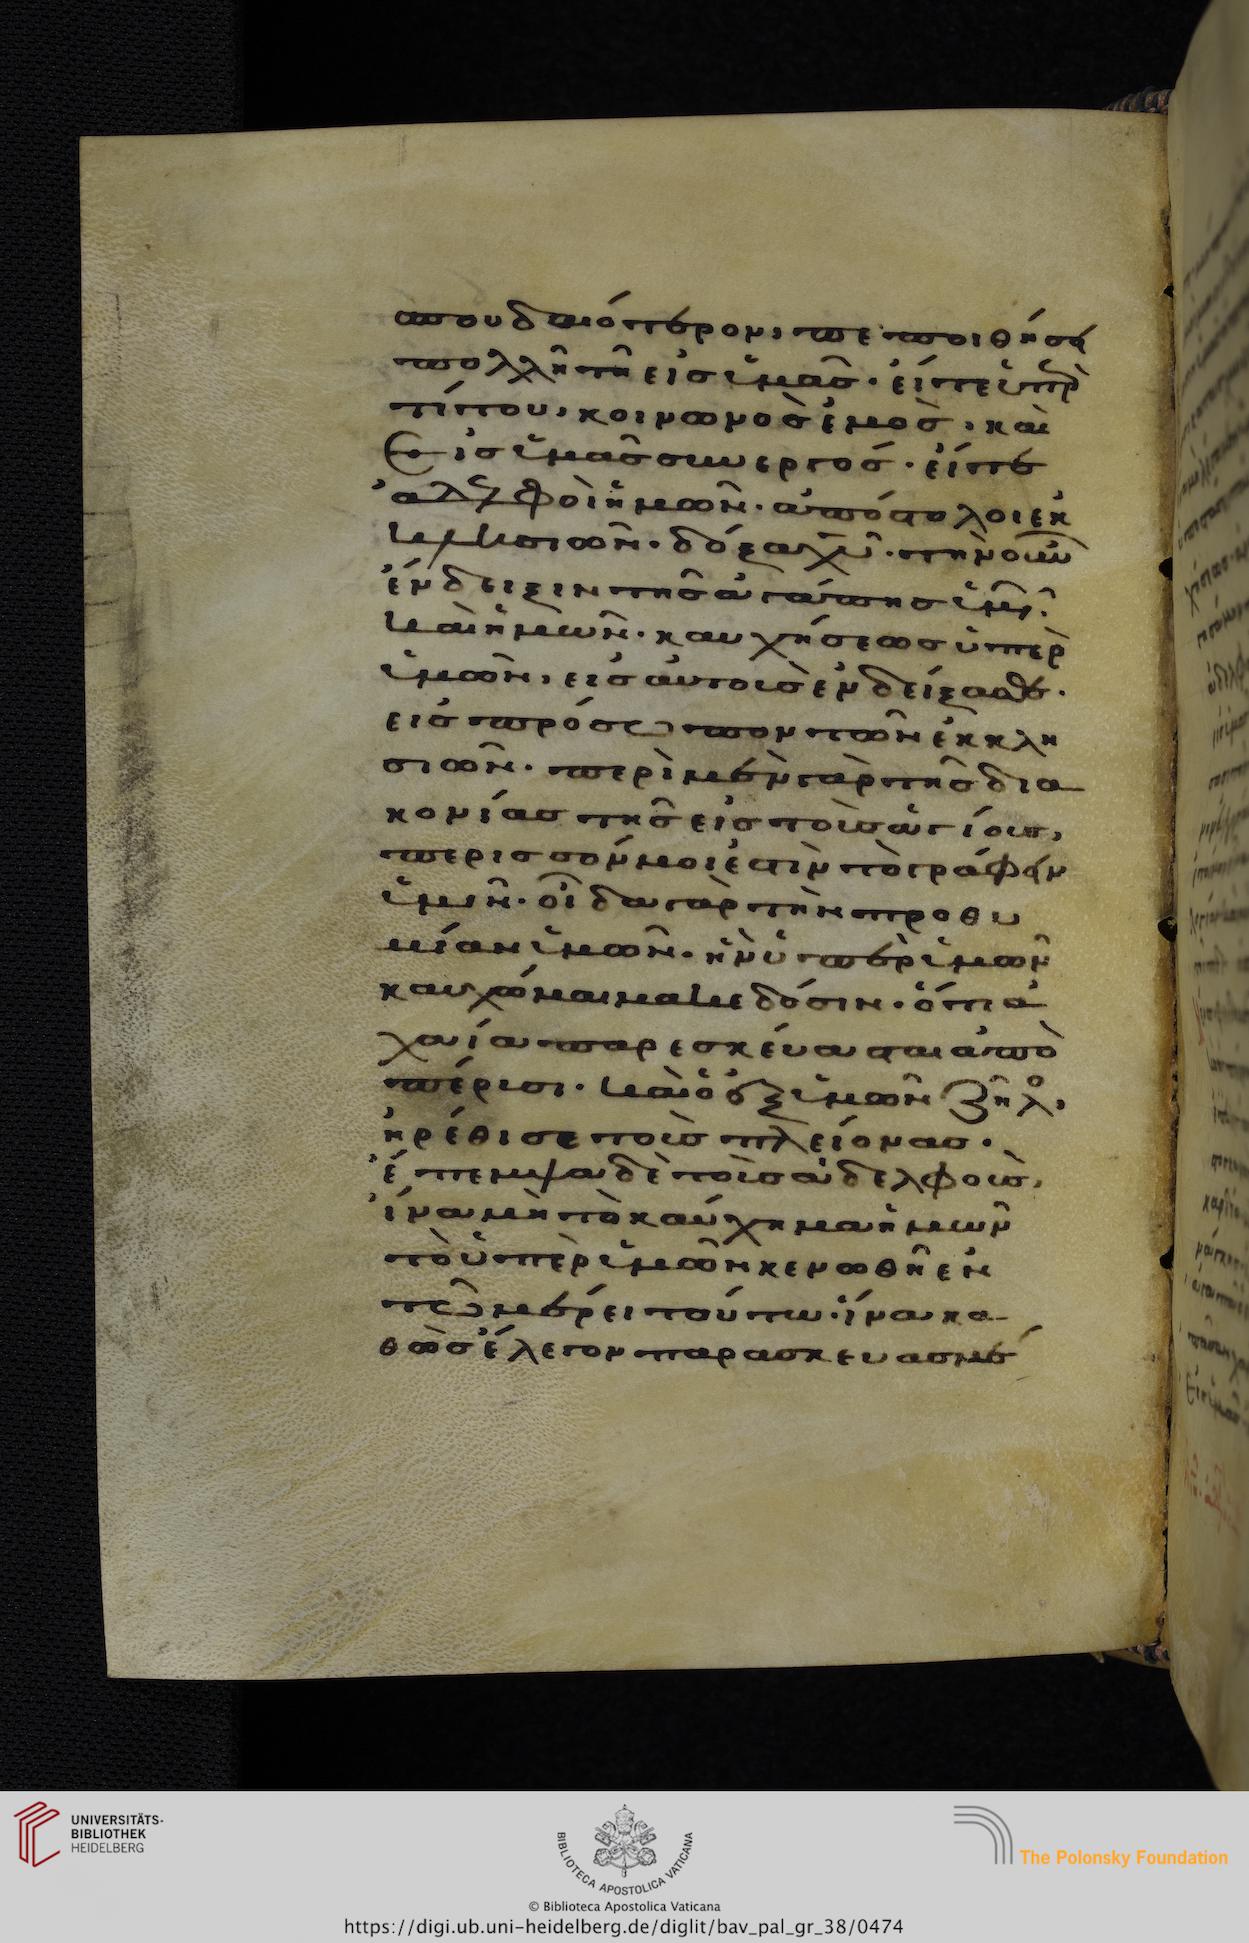 σπουδαιότερον, πεποιθήσει
πολλῆ τῆ εἰς ὑμᾶς. εἴτε ὑπὲρ
τίτου, κοινωνὸς ἐμὸς, καὶ
εἰς ὑμᾶς συνεργός. εἴτε
ἀδελφοὶ ἡμῶν. ἀπόστολοι ἐκ
κλησιῶν. δόξα χῦ. τὴν οὖν
ἔνδειξιν τῆς ἀγάπης ὑμῶν.
καὶ ἡμῶν. καυχήσεως ὑπὲρ
ὑμῶν, εἰς αὐτοὺς ἐνδείξασθε.
εἰς πρόσωπον τῶν ἐκκλη
σιῶν. περὶ μὲν γὰρ τῆς δια
κονίας τῆς εἰς τοὺς ἁγίους,
περισσόν μοι ἐστὶν τὸ γράφειν
ὑμῖν. οἶδα γὰρ τὴν προθυ
μίαν ὑμῶν. ἣν ὑπὲρ ὑμῶν
καυχῶμαι μακεδόσιν. ὅτι ἀ
χαΐα παρεσκεύασται ἀπὸ
πέρυσι. καὶ ὁ ἐξ ὑμῶν ζῆλο,
ἠρέθισε τοὺς πλείονας.
ἔπεμψα δὲ τοὺς ἀδελφοὺς,
ἵνα μὴ τὸ καύχημα ἡμῶν
τὸ ὑπὲρ ὑμῶν κενωθῆ ἐν
τῶ μέρει τούτω. ἵνα κα
θὼς ἔλεγον παρασκευασμέ
UNIVERSITÄTS-
BIBLIOTHEK
HEIDELBERG
BIBLIOTECA APOSTOLICA VATICANA
The Polonsky Foundation
© Biblioteca Apostolica Vaticana
https://digi.ub.uni-heidelberg.de/diglit/bav_pal_gr_38/0474